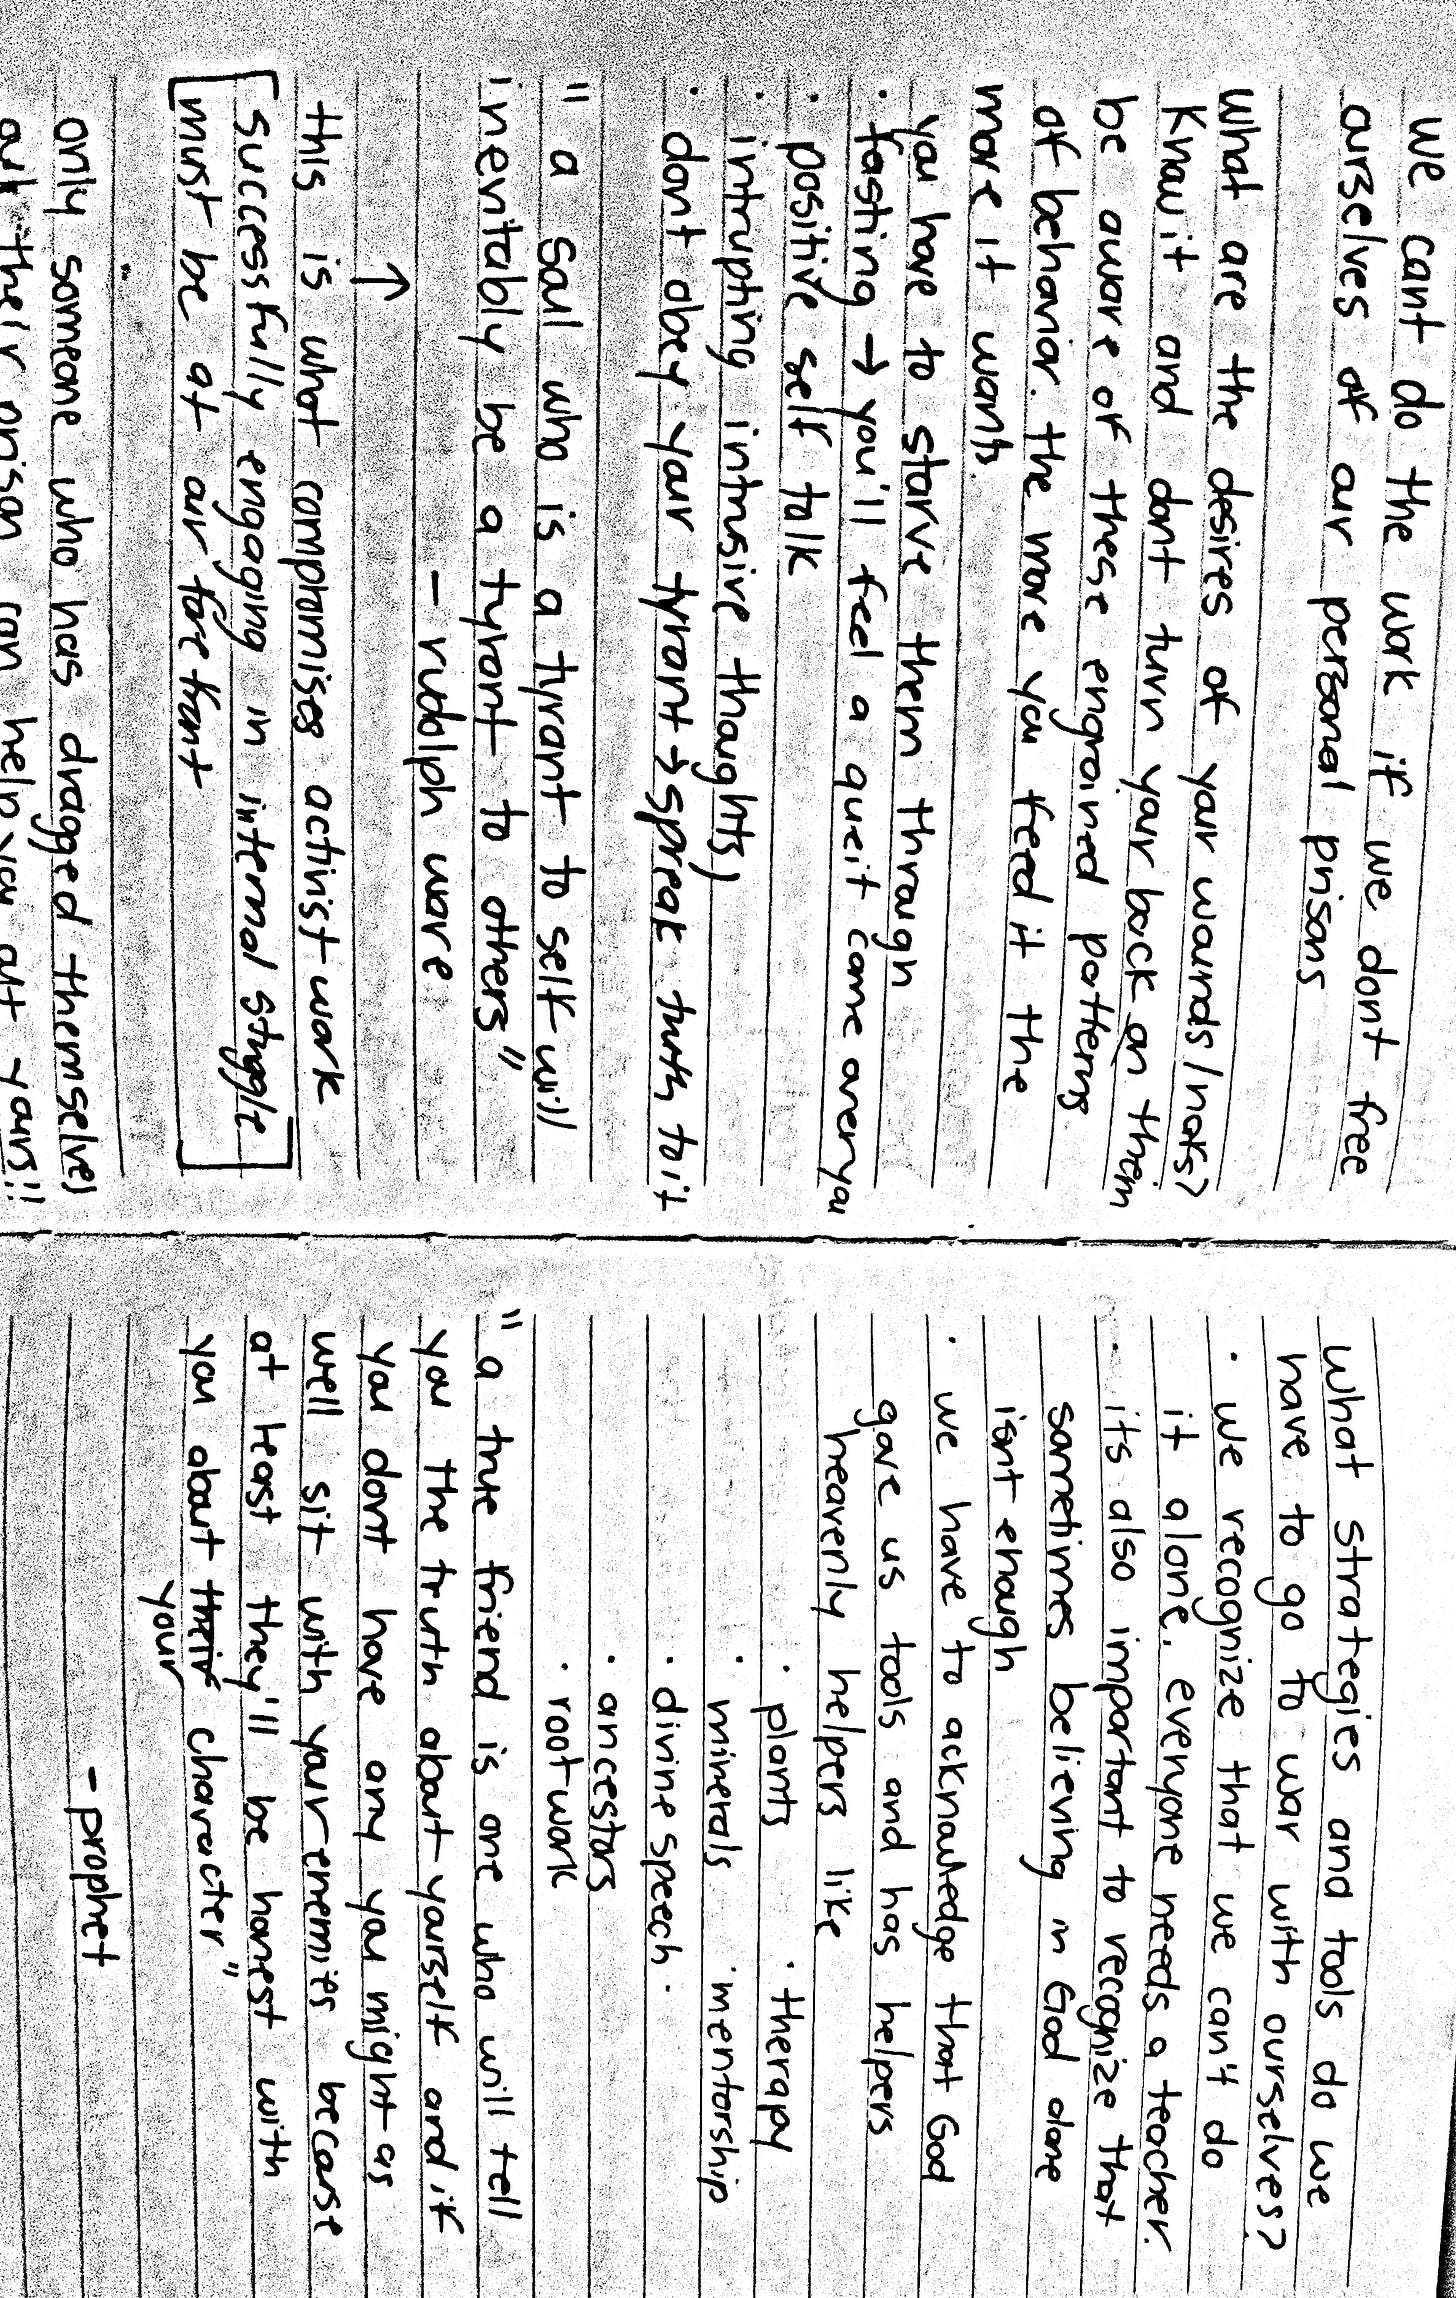 we cant do the work if we dont free
ourselves of our personal prisons
what are the desires of your wounds/nafs?
Know it and dont turn your back on them
be aware of these engrained patterns
of behavior. the more you feed it the
more it wants.
you have to starve them through
· fasting → you'll feel a queit come over you
· positive self talk
· intrupting intrusive thoughts)
· dont obey your tyrant → spreak truth to it
" a soul who is a tyrant to self will
inevitably be a tyrant to others"
- rudolph ware
↑
this is what compromises activist work
[successfully engaging in internal struggle]
[must be at our forefront
only someone who has dragged themselves
out their prison can help you out yours!!
what strategies and tools do we
have to go to war with ourselves?
· we recognize that we can't do
it alone. everyone needs a teacher.
· its also important to recognize that
sometimes believing in God alone
isnt enough
· we have to acknowledge that God
gave us tools and has helpers
heavenly helpers like
· plants · therapy
· minerals · mentorship
· divine speech ·
· ancestors
· rootwork
" a true friend is one who will tell
you the truth about yourself and if
you dont have any you might as
well sit with your enemies because
at least they'll be honest with
you about your character"
- prophet